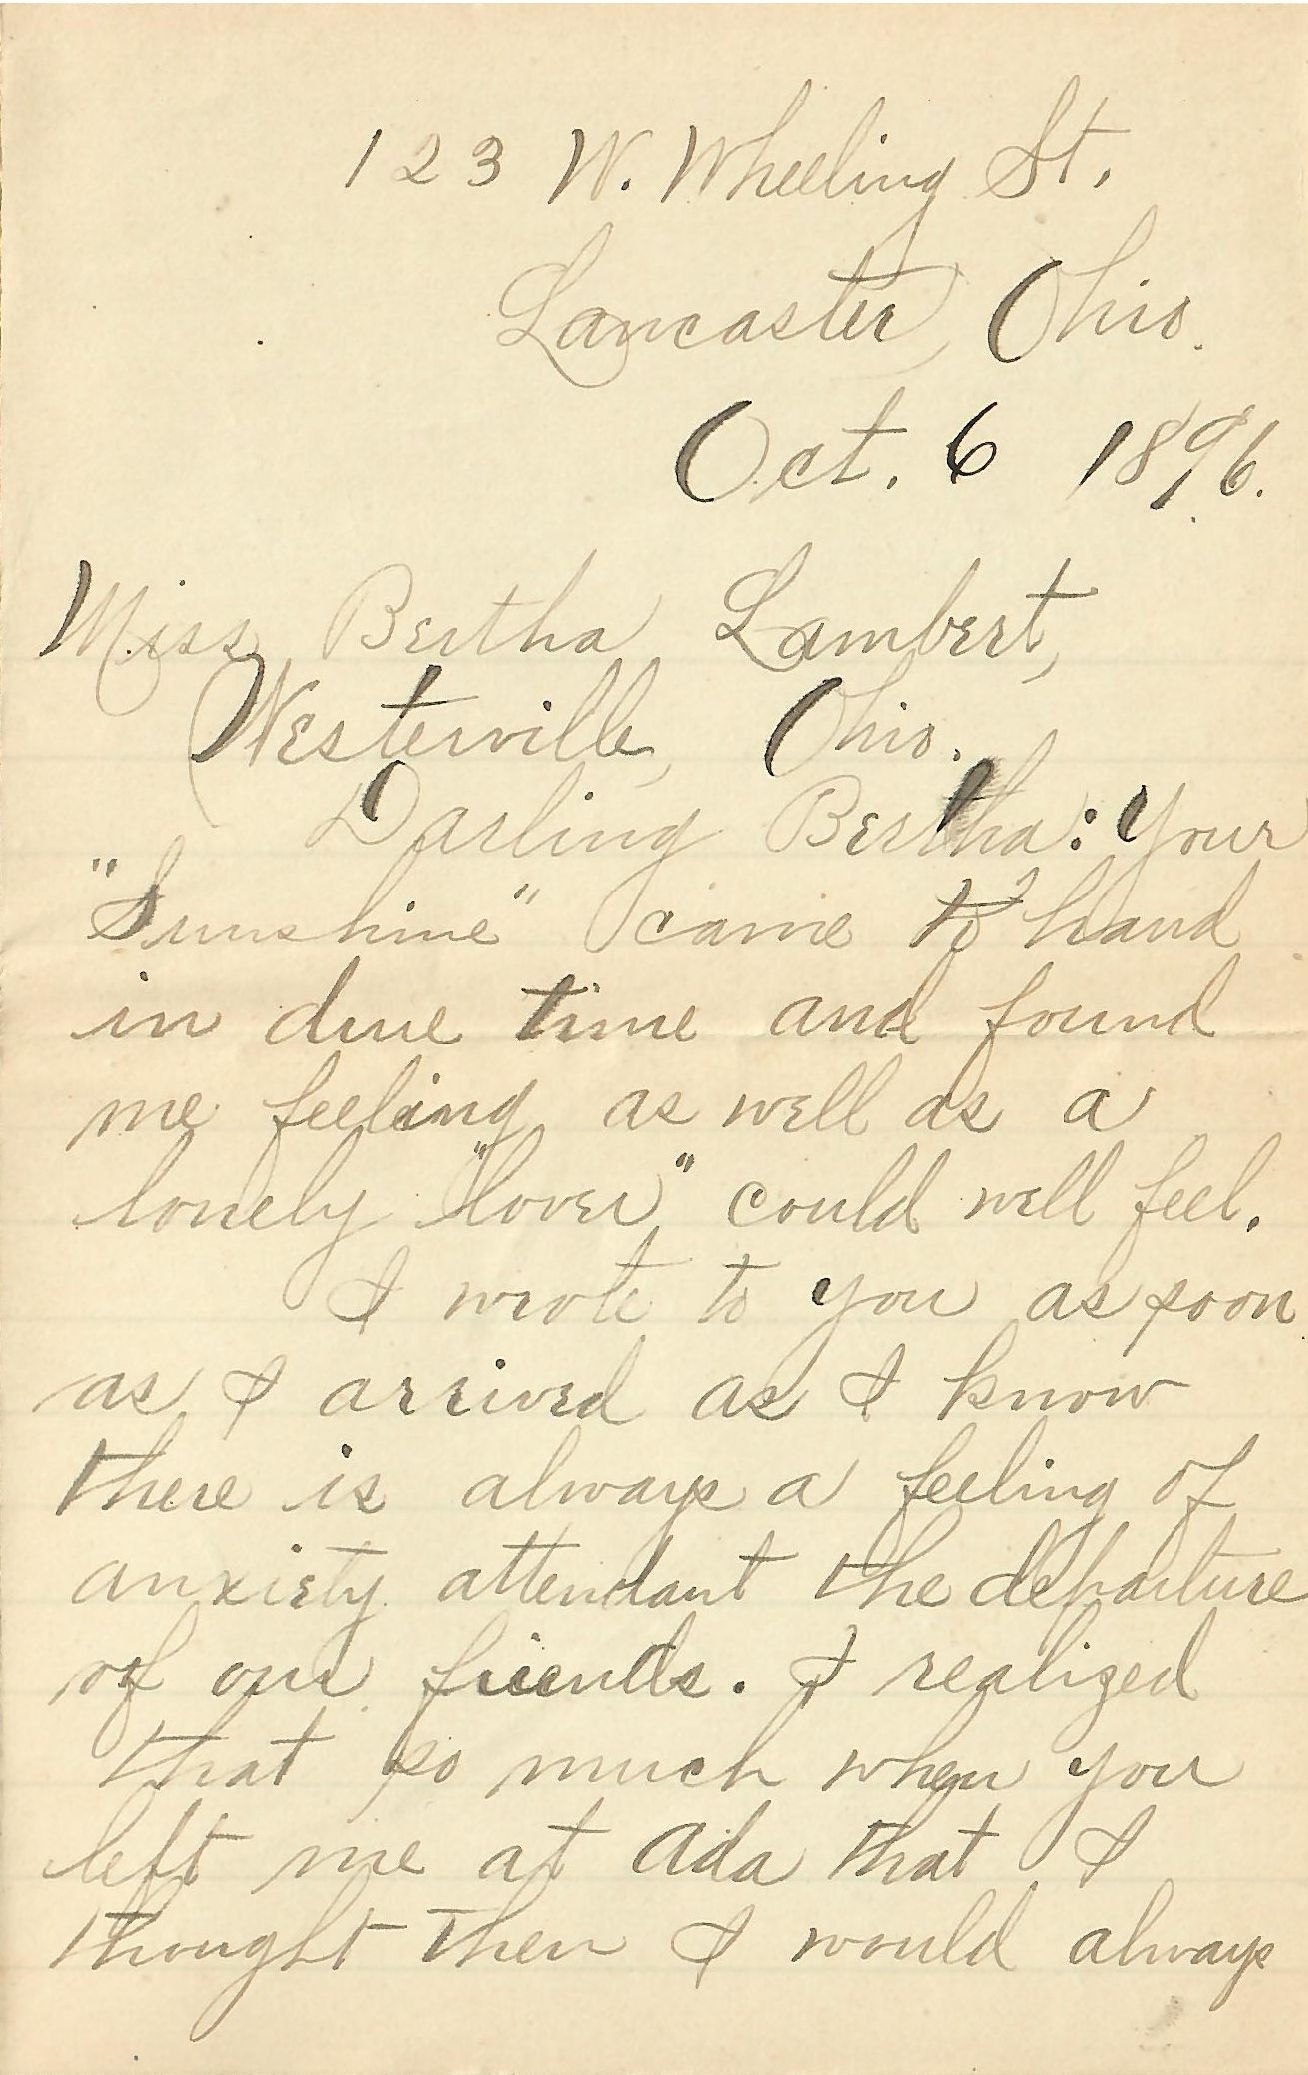 123 W. Wheeling St.,
Lancaster, Ohio.
Oct. 6 1896.
Miss Bertha Lambert,
Westerville, Ohio.
Darling Bertha: Your
"Sunshine" came to hand
in due time and found
me feeling as well as a
lonely "lover" could well feel.
I wrote to you as soon
as I arrived as I know
there is always a feeling of
anxiety attendant the departure
of our friends. I realized
that so much when you
left me at Ada that I
thought then I would always